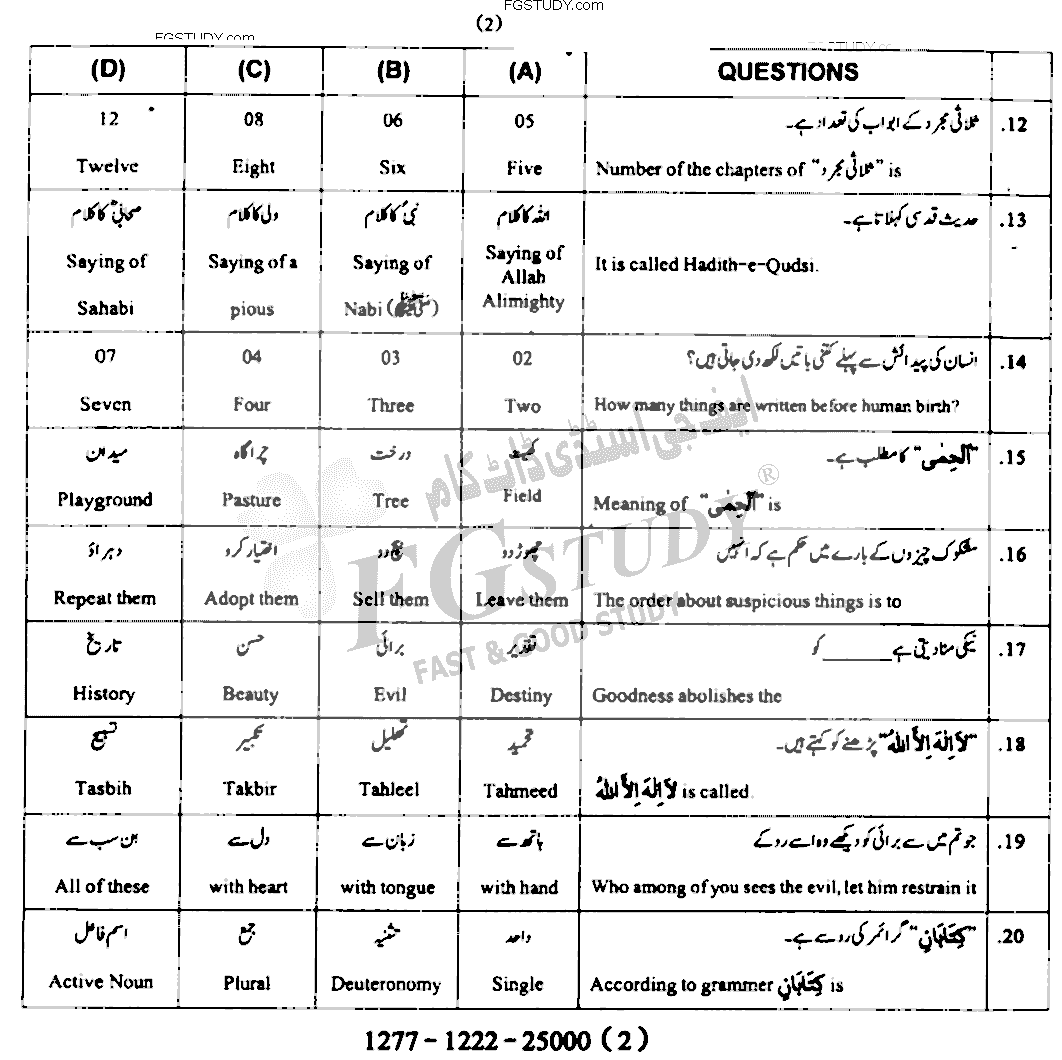 FGSTUDY.com
(2)
FGSTUDY.com
(D) (C) (B) (A) QUESTIONS
12 08 06 05 ثلاثی مجرد کے ابواب کی تعداد ہے۔ .12
Twelve Eight Six Five Number of the chapters of "ثلاثی مجرد" is
صحابیؓ کا کلام ولی کا کلام نبیؐ کا کلام اللہ کا کلام حدیث قدسی کہلاتا ہے۔ .13
Saying of Saying of a Saying of Saying of It is called Hadith-e-Qudsi.
Allah
Sahabi pious Nabi (ﷺ) Alimighty
07 04 03 02 انسان کی پیدائش سے پہلے کتنی باتیں لکھ دی جاتی ہیں؟ .14
Seven Four Three Two How many things are written before human birth?
میدان چراگاہ درخت کھیت "اَلْحِمٰی" کا مطلب ہے۔ .15
Playground Pasture Tree Field Meaning of "اَلْحِمٰی" is
دہراؤ اختیار کرو بیچ دو چھوڑ دو مشکوک چیزوں کے بارے میں حکم ہے کہ انہیں .16
Repeat them Adopt them Sell them Leave them The order about suspicious things is to
تاریخ حسن برائی تقدیر نیکی مٹا دیتی ہے ______ کو .17
History Beauty Evil Destiny Goodness abolishes the
تسبیح تکبیر تہلیل تحمید "لَا اِلٰهَ اِلَّا اللّٰهُ" پڑھنے کو کہتے ہیں۔ .18
Tasbih Takbir Tahleel Tahmeed لَا اِلٰهَ اِلَّا اللّٰهُ is called.
ان سب سے دل سے زبان سے ہاتھ سے جو تم میں سے برائی کو دیکھے وہ اسے روکے .19
All of these with heart with tongue with hand Who among of you sees the evil, let him restrain it
اسم فاعل جمع تثنیہ واحد "كِتَابَانِ" گرائمر کی رو سے ہے۔ .20
Active Noun Plural Deuteronomy Single According to grammer كِتَابَانِ is
1277 – 1222 – 25000 ( 2 )
ایف جی اسٹڈی ڈاٹ کام
FGSTUDY ®
FAST & GOOD STUDY